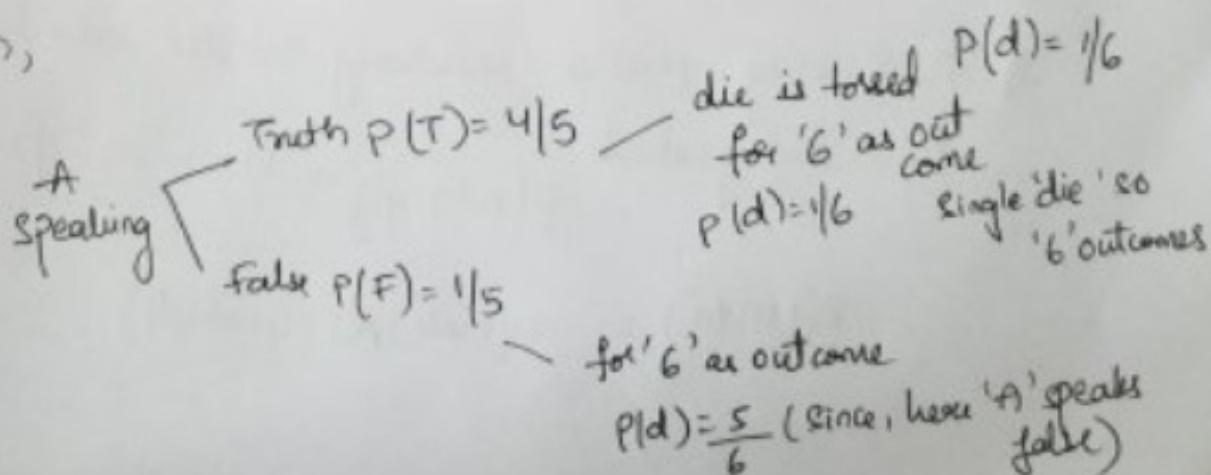 A speaking
Truth P(T) = 4/5
die is tossed P(d) = 1/6
for '6' as out come
p(d) = 1/6
Single 'die' so '6' outcomes
False P(F) = 1/5
for '6' as outcome
P(d) = 5/6 (Since, here 'A' speaks false)